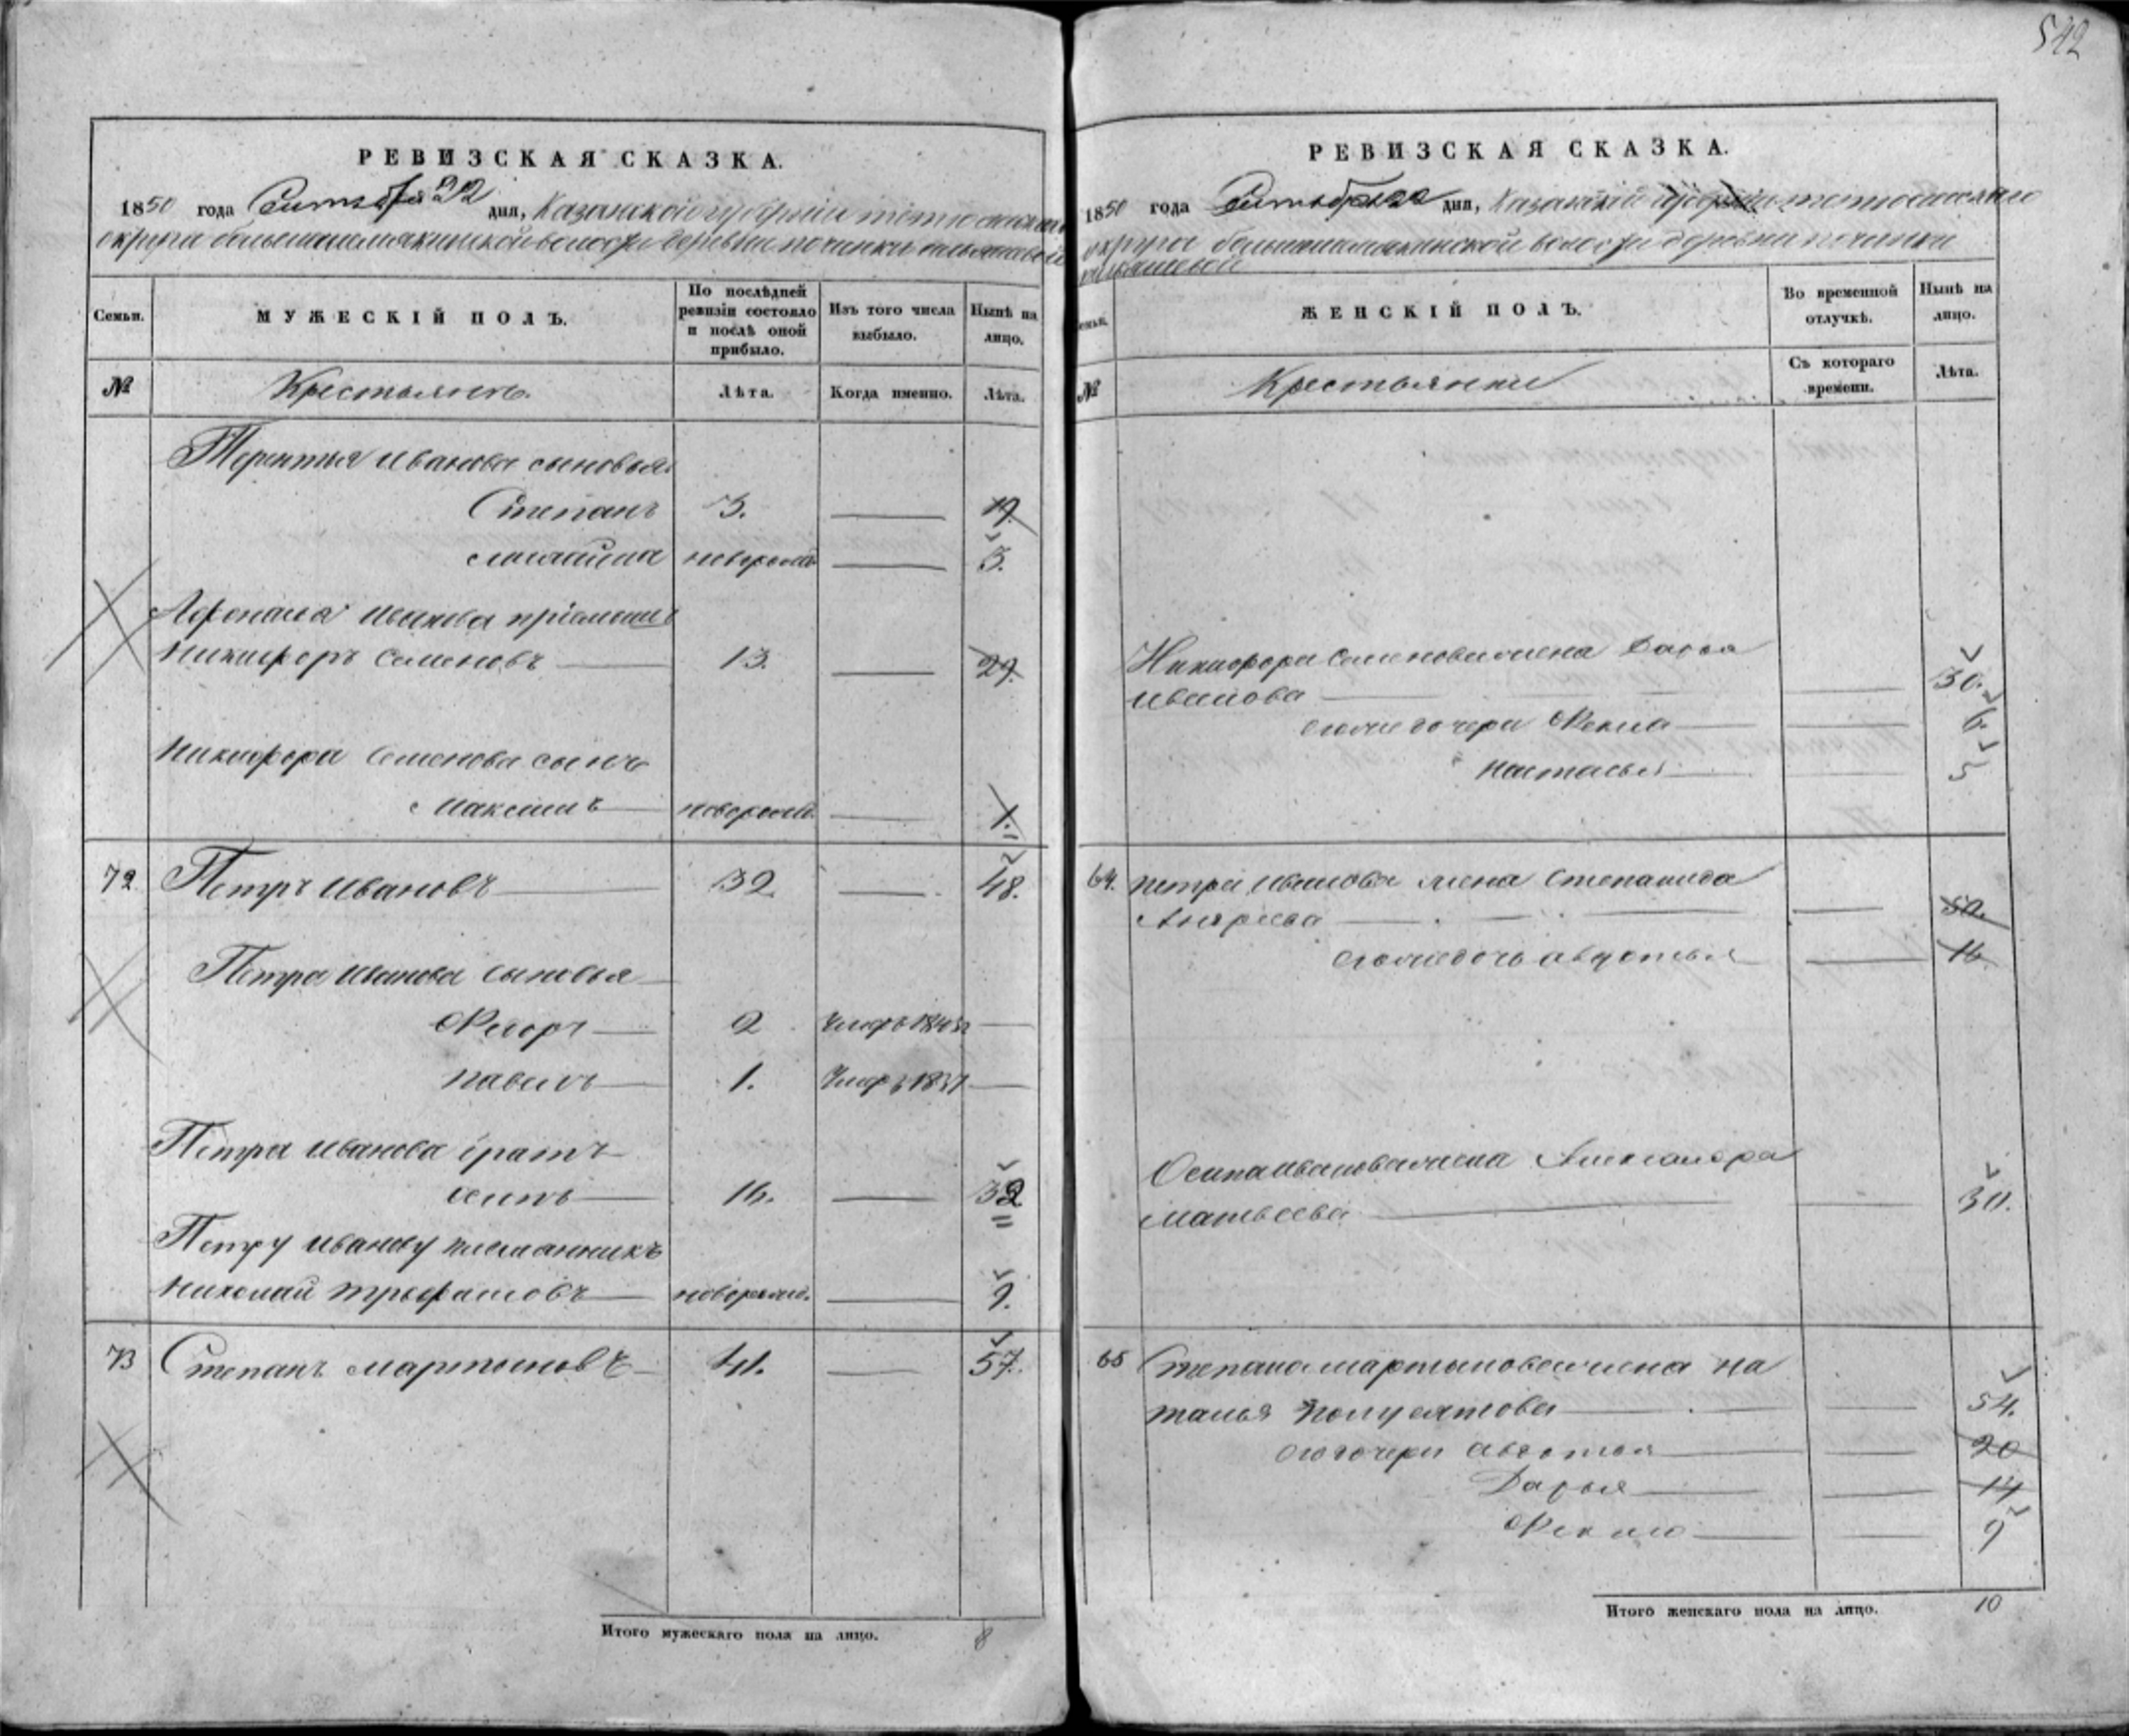 542
РЕВИЗСКАЯ СКАЗКА.
1850 года Сентября 22 дня, Казанской губернии тетюшскаго
округа волости деревни починки
Семьи.
МУЖЕСКІЙ ПОЛЪ.
По послѣдней ревизіи состояло и послѣ оной прибыло.
Изъ того числа выбыло.
Нынѣ на лицо.
№
Крестьянъ.
Лѣта.
Когда именно.
Лѣта.
Терентья Иванова сыновья
Степанъ 3. 19.
новорожд 3.
Афонасья Иванова пріемышь
Никифоръ Семеновъ 13. 29.
Никифора Семенова сынъ
Максимъ новорожд. 1.
72. Петръ Ивановъ 32. 48.
Петра Иванова сыновья
Ѳедоръ 2 Умеръ
Павелъ 1. Умеръ 1837
Петра Иванова братъ
Осипъ 16. 32
Петру Иванову племянникъ
Николай новорожд. 9.
73 Степанъ Мартыновъ 41. 57.
Итого мужескаго пола на лицо. 8
РЕВИЗСКАЯ СКАЗКА.
1850 года Сентября 22 дня, Казанской губернии тетюшскаго
округа волости деревни починки
Семьи.
ЖЕНСКІЙ ПОЛЪ.
Во временной отлучкѣ.
Нынѣ на лицо.
№
Крестьянки
Съ котораго времени.
Лѣта.
Никифора Семенова жена Дарья
Иванова 30.
дочери Ѳекла 6.
Настасья 5
64. Петра Иванова жена Степанида
Андреева 50.
дочь Авдотья 16
Осипа Иванова жена Александра
Матвеева 30.
65 Степана Мартынова жена На
талья 54.
дочери Авдотья 20
Дарья 14
Ѳекла 9
Итого женскаго пола на лицо. 10